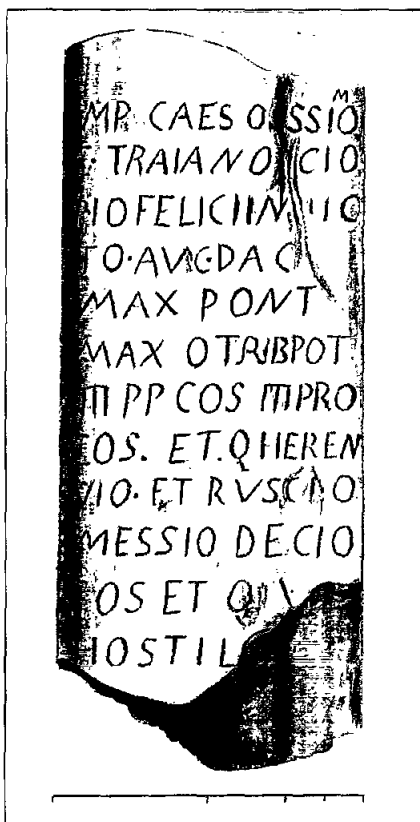 MP. CAES O SSIO M
TRAIANO CIO
IO FELICI IN IIC
TO·AVG·DAC
MAX PONT
MAX O TRIB POT
III PP COS III PRO
OS. ET. Q HEREN
IO. ET RVSCIO
MESSIO DECIO
OS ET Q V
IOSTIL